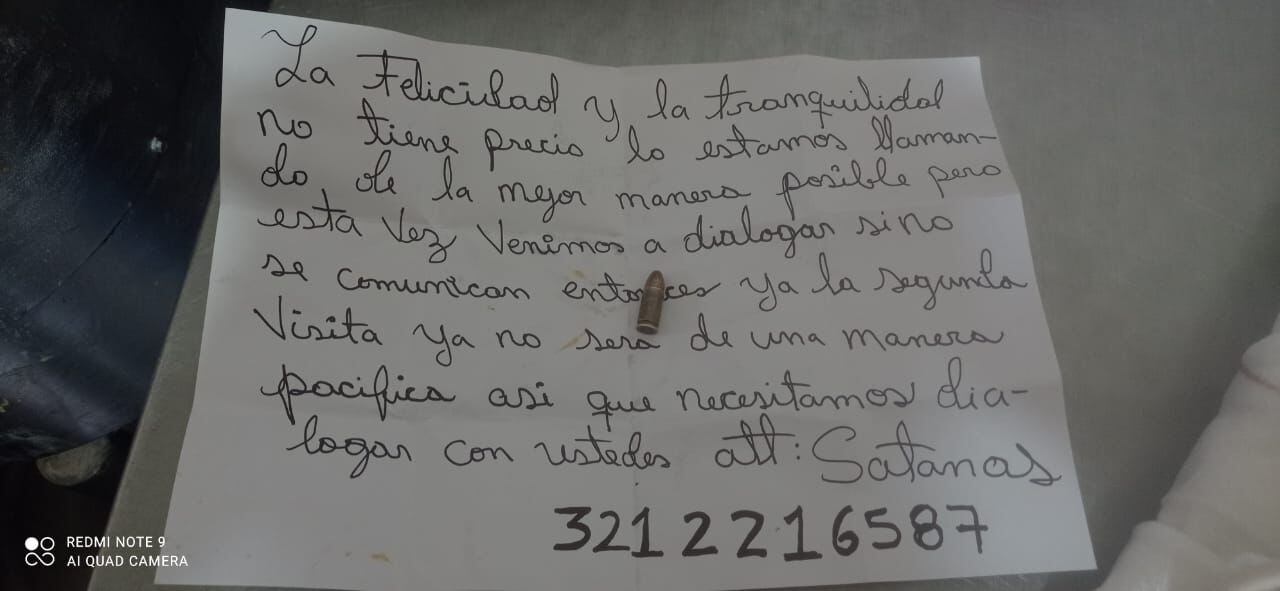 La Felicidad y la tranquilidad
no tiene precio lo estamos llaman-
do, de la mejor manera posible pero
esta vez venimos a dialogar sino
se comunican entonces ya la segunda
Visita ya no será de una manera
pacifica asi que necesitamos dia-
logar con ustedes att: Satanas
3212216587
REDMI NOTE 9
AI QUAD CAMERA